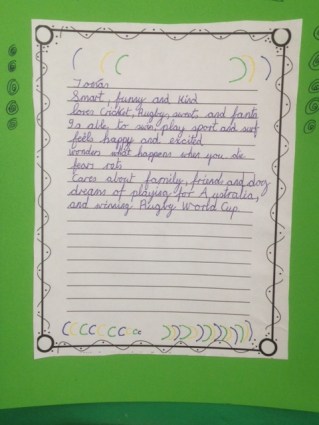 Smart, funny and kind
loves Cricket, Rugby, and fanta
Is able to swim, play sport and surf
feels happy and excited
wonders what happens when you die
fears rats
Cares about family, friends and dog
dreams of playing for Australia,
and winning Rugby World Cup